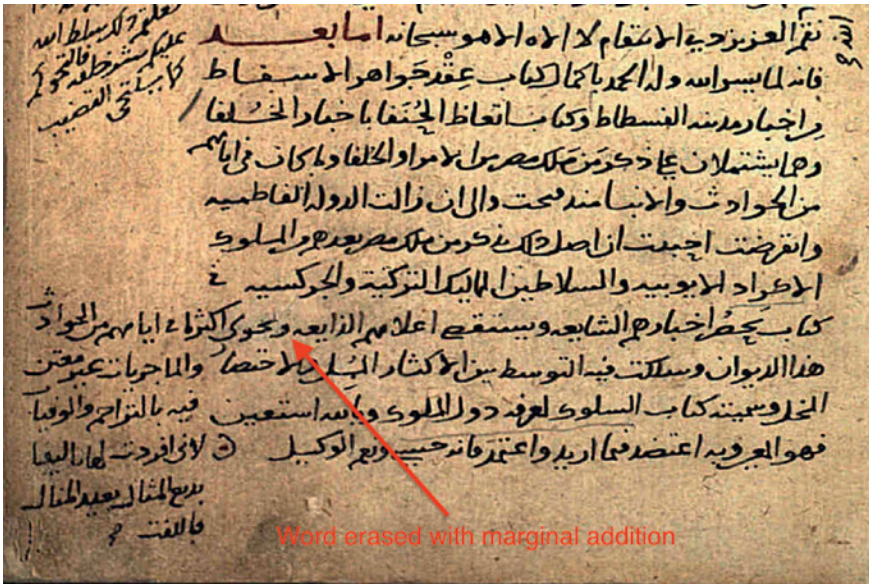 العزيز ذي الانتقام لا الاه الا هو سبحانه اما بعد
فانه لما يسر الله وله الحمد باكمال كتاب عقد جواهر الاسفاط
من اخبار مدينه الفسطاط وكتاب اتعاظ الحُنَفا باخبار الخُلفا
وهما يشتملان على ذكر من ملك مصر من الامرا والخلفا وما كان في ايامهم
من الحوادث والانبا منذ فتحت والى ان زالت الدوله الفاطميه
وانقرضت احببت ان اصل ذلك بذكر من ملك مصر بعدهم من الملوك
الاكراد الايوبيه والسلاطين المماليك التركية والجركسيه في
كتاب يحصُر اخبارهم الشايعه ويستقصي اعلامهم الذايعه ويحوي اكثر ما في ايامهم من الحوادث
هذا الديوان وسلكت فيه التوسط بين الاكثار المُمل والاختصار والماجريات غير معتن
المخل وسميته كتاب السلوك لمعرفه دول الملوك وبالله استعين فيه بالتراجم والوفيات
فهو المعين وبه اعتضد فيما اريد واعتمد فانه حسبي ونعم الوكيل لاني افردت لها تاليفا
بديع المثال بعيد المنال
فالفت
Word erased with marginal addition